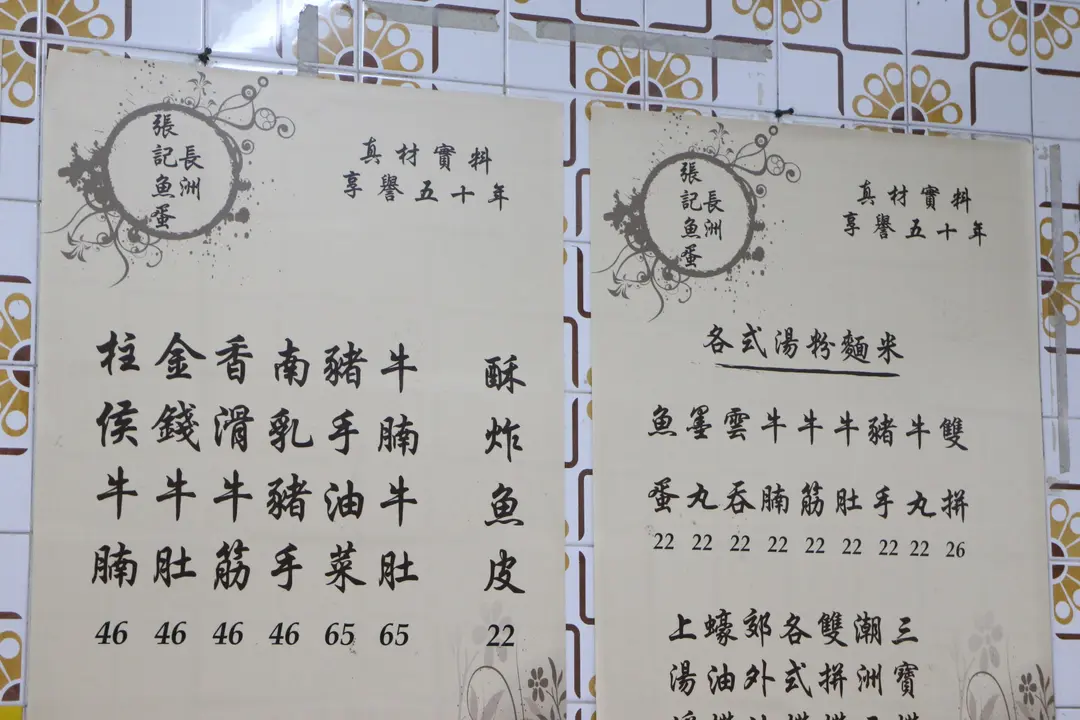 長洲
張記魚蛋
真材實料
享譽五十年
酥炸魚皮 22
牛腩牛肚 65
豬手油菜 65
南乳豬手 46
香滑牛筋 46
金錢牛肚 46
柱侯牛腩 46
長洲
張記魚蛋
真材實料
享譽五十年
各式湯粉麵米
雙拼 26
牛丸 22
豬手 22
牛肚 22
牛筋 22
牛腩 22
雲吞 22
墨丸 22
魚蛋 22
三寶
潮洲
雙拼
各式
郊外
蠔油
上湯